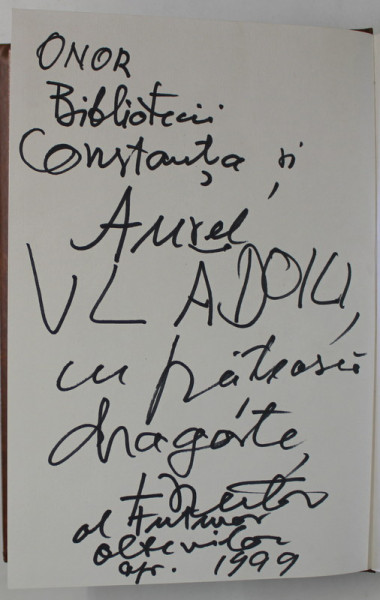 ONOR
Bibliotecii
Constanța și
Aurel
VLĂDOIU,
cu pătrasca
dragoste,
al tuturor
oltenilor
apr. 1999